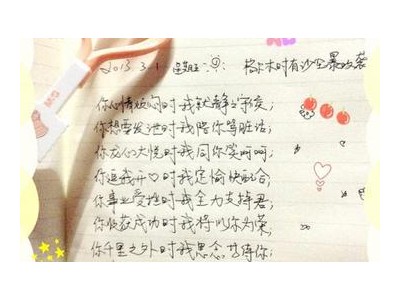 2013 3.1 星期五 格尔木时有沙尘暴攻袭
你心情烦闷时我就静静守候;
你想要发泄时我陪你骂脏话;
你放心大悦时我同你笑呵呵;
你逗我开♡时我定愉快配合;
你事业受挫时我全力支撑君;
你收获成功时我将以你为荣;
你千里之外时我思念苦待你;